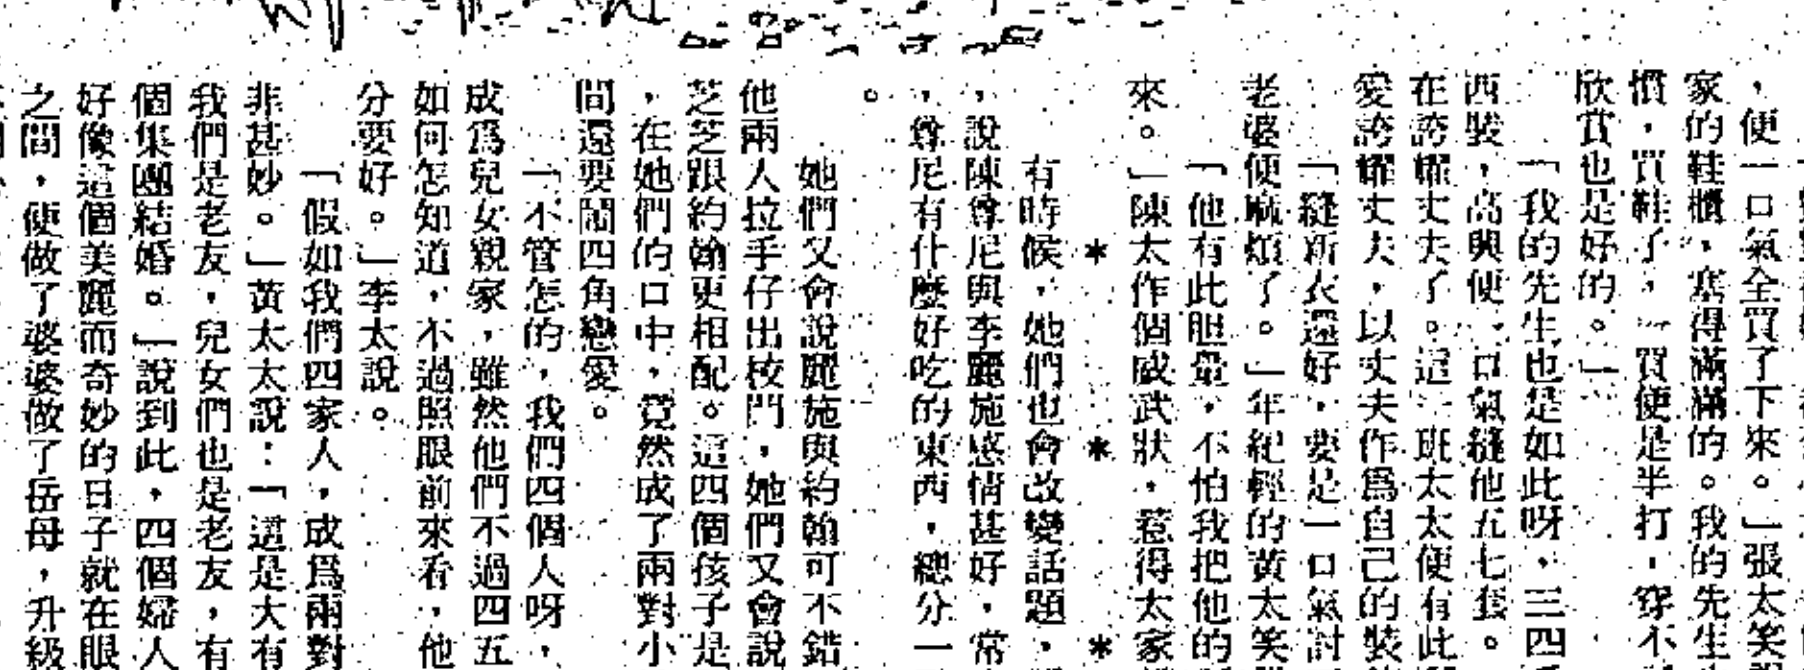 ，便一口氣全買了下來。」張太笑
家的鞋櫃，塞得滿滿的。我的先生
慣，買鞋了，一買便是半打，穿不
欣賞也是好的。」
「我的先生也是如此呀，三四
西裝，高興便一口氣縫他五七套。
在誇耀丈夫了。這一班太太便有此
愛誇耀丈夫，以丈夫作爲自己的裝
「縫新衣還好，要是一口氣討
老婆便麻煩了。」年紀輕的黃太笑
「他有此胆量，不怕我把他的
來。」陳太作個威武狀，惹得太家
＊　＊　＊
有時候，她們也會改變話題，
，說陳尊尼與李麗施感情甚好，常
，尊尼有什麼好吃的東西，總分一
。
她們又會說麗施與約翰可不錯
他兩人拉手仔出校門，她們又會說
芝芝跟約翰更相配。這四個孩子是
，在她們的口中，竟然成了兩對小
間還要鬧四角戀愛。
「不管怎的，我們四個人呀，
成爲兒女親家，雖然他們不過四五
如何怎知道，不過照眼前來看，他
分要好。」李太說。
「假如我們四家人，成爲兩對
非甚妙。」黃太太說：「這是大有
我們是老友，兒女們也是老友，有
個集團結婚。」說到此，四個婦人
好像這個美麗而奇妙的日子就在眼
之間，便做了婆婆做了岳母，升級